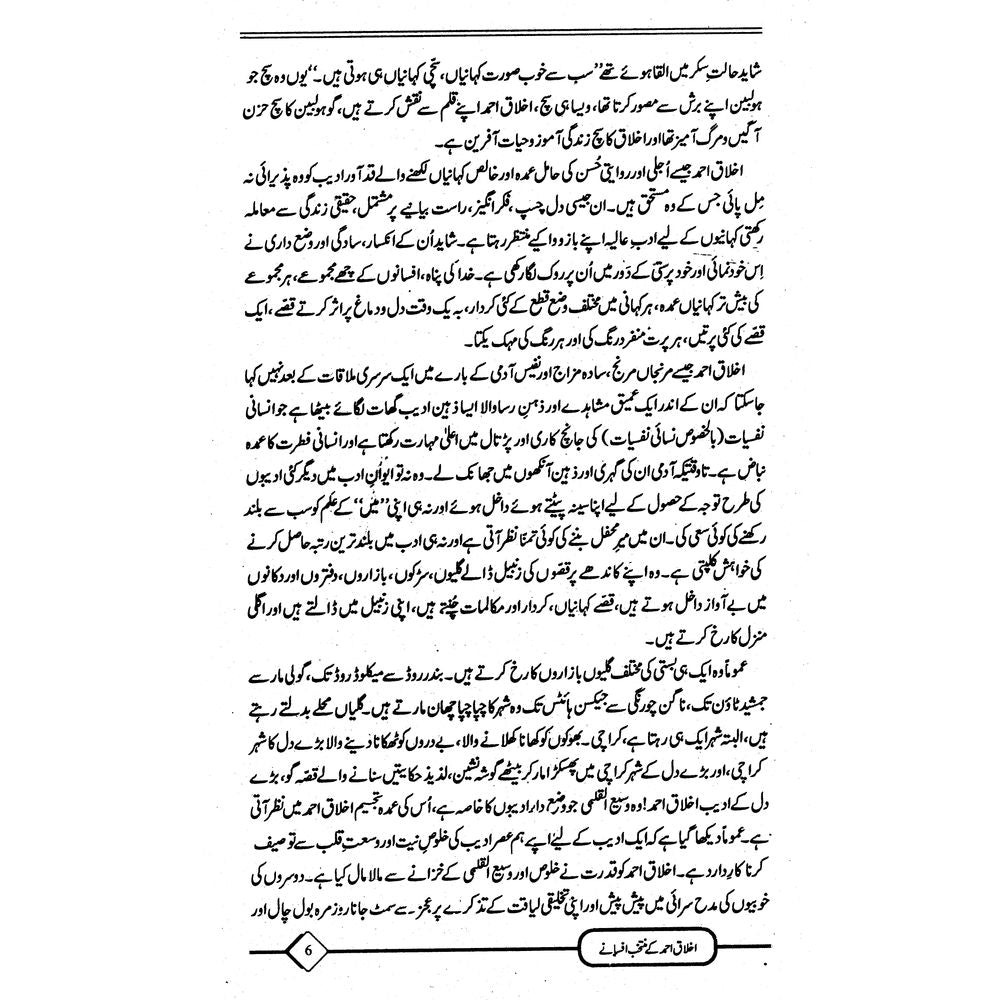 شاید حالتِ سکر میں القا ہوئے تھے ”سب سے خوب صورت کہانیاں، سچّی کہانیاں ہی ہوتی ہیں۔“ یوں وہ سچ جو
ہولبین اپنے برش سے مصور کرتا تھا، ویسا ہی سچ، اخلاق احمد اپنے قلم سے نقش کرتے ہیں، گو ہولبین کا سچ حزن
آگیں و مرگ آمیز تھا اور اخلاق کا سچ زندگی آموز و حیات آفرین ہے۔
اخلاق احمد جیسے اُجلی اور روایتی حُسن کی حامل عمدہ اور خالص کہانیاں لکھنے والے قد آور ادیب کو وہ پذیرائی نہ
مِل پائی جس کے وہ مستحق ہیں۔ ان جیسی دل چسپ، فکر انگیز، راست بیانیے پر مشتمل، حقیقی زندگی سے معاملہ
رکھتی کہانیوں کے لیے ادبِ عالیہ اپنے بازو وا کیے منتظر رہتا ہے۔ شاید اُن کے انکسار، سادگی اور وضع داری نے
اِس خود نمائی اور خود پرستی کے دَور میں اُن پر روک لگا رکھی ہے۔ خدا کی پناہ، افسانوں کے چھے مجموعے، ہر مجموعے
کی بیش تر کہانیاں عمدہ، ہر کہانی میں مختلف وضع قطع کے کئی کردار، بہ یک وقت دل و دماغ پر اثر کرتے قصّے، ایک
قصّے کی کئی پرتیں، ہر پرت منفرد رنگ کی اور ہر رنگ کی مہک یکتا۔
اخلاق احمد جیسے مرنجاں مرنج، سادہ مزاج اور نفیس آدمی کے بارے میں ایک سرسری ملاقات کے بعد نہیں کہا
جاسکتا کہ ان کے اندر ایک عمیق مشاہدے اور ذہنِ رسا والا ایسا ذہین ادیب گھات لگائے بیٹھا ہے جو انسانی
نفسیات (بالخصوص نسائی نفسیات) کی جانچ کاری اور پڑتال میں اعلیٰ مہارت رکھتا ہے اور انسانی فطرت کا عمدہ
نباض ہے۔ تاوقتیکہ آدمی ان کی گہری اور ذہین آنکھوں میں جھانک لے۔ وہ نہ تو ایوانِ ادب میں دیگر کئی ادیبوں
کی طرح توجہ کے حصول کے لیے اپنا سینہ پیٹتے ہوئے داخل ہوئے اور نہ ہی اپنی ”میں“ کے عَلم کو سب سے بلند
رکھنے کی کوئی سعی کی۔ ان میں میرِ محفل بننے کی کوئی تمنّا نظر آتی ہے اور نہ ہی ادب میں بلند ترین رتبہ حاصل کرنے
کی خواہش کلپتی ہے۔ وہ اپنے کاندھے پر قصّوں کی زنبیل ڈالے گلیوں، سڑکوں، بازاروں، دفتروں اور دکانوں
میں بے آواز داخل ہوتے ہیں، قصّے کہانیاں، کردار اور مکالمات چُنتے ہیں، اپنی زنبیل میں ڈالتے ہیں اور اگلی
منزل کا رخ کرتے ہیں۔
عموماً وہ ایک ہی بستی کی مختلف گلیوں بازاروں کا رخ کرتے ہیں۔ بندر روڈ سے میکلوڈ روڈ تک، گولی مار سے
جمشید ٹاؤن تک، ناگن چورنگی سے جیکسن ہائٹس تک وہ شہر کا چپا چپا چھان مارتے ہیں۔ گلیاں محلے بدلتے رہتے
ہیں، البتہ شہر ایک ہی رہتا ہے، کراچی۔ بھوکوں کو کھانا کھلانے والا، بے دروں کو ٹھکانا دینے والا بڑے دل کا شہر
کراچی، اور بڑے دل کے شہر کراچی میں پھسکڑا مار کر بیٹھے گوشہ نشین، لذیذ حکایتیں سنانے والے قصّہ گو، بڑے
دل کے ادیب اخلاق احمد! وہ وسیع القلبی جو وضع دار ادیبوں کا خاصہ ہے، اُس کی عمدہ تجسیم اخلاق احمد میں نظر آتی
ہے۔ عموماً دیکھا گیا ہے کہ ایک ادیب کے لیے اپنے ہم عصر ادیب کی خلوصِ نیت اور وسعتِ قلب سے توصیف
کرنا کارِ دارد ہے۔ اخلاق احمد کو قدرت نے خلوص اور وسیع القلبی کے خزانے سے مالا مال کیا ہے۔ دوسروں کی
خوبیوں کی مدح سرائی میں پیش پیش اور اپنی تخلیقی لیاقت کے تذکرے پر عجز سے سمٹ جانا روز مرہ بول چال اور
اخلاق احمد کے منتخب افسانے
6